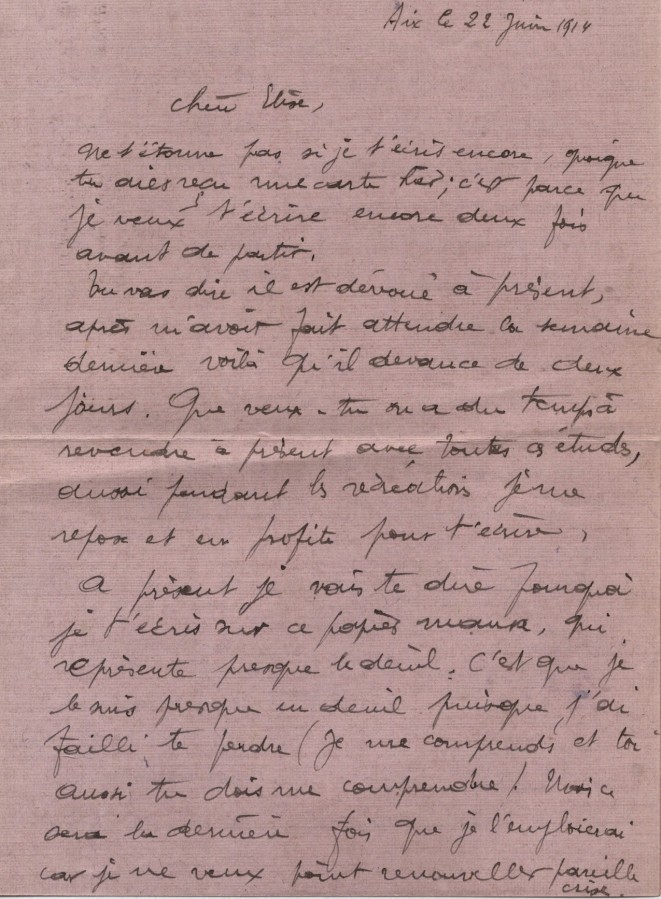 Aix le 22 Juin 1914
chère Elise,
Ne t'étonne pas si je t'écris encore, quoique
tu aies reçu une carte hier; c'est parce que
je veux t'écrire encore deux fois
avant de partir.
Tu vas dire il est dévoué à présent,
après m'avoir fait attendre la semaine
dernière voilà qu'il devance de deux
jours. Que veux-tu on a du temps à
revendre à présent avec toutes ces études,
aussi pendant les récréations je me
repose et en profite pour t'écrire,
A présent je vais te dire pourquoi
je t'écris sur ce papier mauve, qui
représente presque le deuil. C'est que je
le suis presque en deuil puisque j'ai
failli te perdre (Je me comprends et toi
aussi tu dois me comprendre! Mais ce
sera la dernière fois que je l'emploierai
car je ne veux point renouveller pareille
crise.